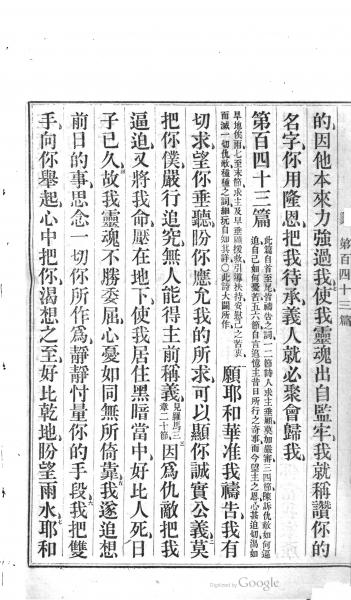 第百四十三篇
的因他本來力強過我使我靈魂出自監牢我就稱讚你的
名字你用隆恩把我待承義人就必聚會歸我
第百四十三篇 此篇自首至尾皆禱告之詞一二節詩人求主垂顧莫加嚴審三四節陳訴仇敵如何逼
迫自己如何憂苦五六節自言追憶主昔日所行之奇事而今望主之恩心甚迫切渴如
旱地俟雨七至末節求主及早垂顧援救引導扶持安慰己之苦衷
而滅一切仇敵種種之詞細玩自知其詳○此詩大闢所作 願耶和華准我禱告我有
切求望你垂聽盼你應允我的所求可以顯你誠實公義莫
把你僕嚴行追究無人能得主前稱義見羅馬三章二十節因爲仇敵把我
逼迫又將我命壓在地下使我居住黑暗當中好比人死日
子已久故我靈魂不勝委屈心憂如同無所倚靠我遂追想
前日的事思念一切你所作爲靜靜忖量你的手段我把雙
手向你舉起心中把你渴想之至好比乾地盼望雨水耶和
Digitized by Google